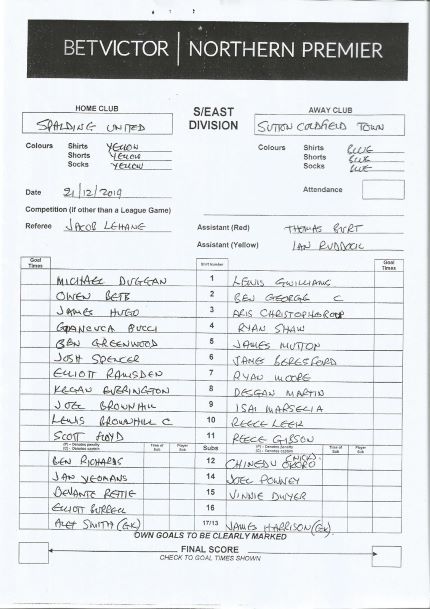 BETVICTOR | NORTHERN PREMIER
HOME CLUB S/EAST DIVISION AWAY CLUB
SPALDING UNITED SUTTON COLDFIELD TOWN
Colours Shirts YELLOW Colours Shirts BLUE
Shorts YELLOW Shorts BLUE
Socks YELLOW Socks BLUE
Date 21/12/2019 Attendance
Competition (If other than a League Game)
Referee JACOB LEHANE Assistant (Red) THOMAS BURT
Assistant (Yellow) IAN RUDDOCK
Goal Times Shirt Number Goal Times
MICHAEL DUGGAN 1 LEWIS GWILLIAMS
OWEN BETTS 2 BEN GEORGE C
JAMES HUGO 3 ARIS CHRISTOPHOROU
BUCCI 4 RYAN SHAW
BEN GREENWOOD 5 JAMES MUTTON
JOSH SPENCER 6 JAMIE BERESFORD
ELLIOTT RAMSDEN 7 RYAN MOORE
KEGAN EVERINGTON 8 DEEGAN MARTIN
JOEL BROWNHILL 9 ISAI MARSELIA
LEWIS BROWNHILL C 10 REECE LEEK
SCOTT FLOYD 11 REECE GIBSON
(P) - Denotes penalty (C) - Denotes captain Time of Sub Player Sub Subs (P) - Denotes penalty (C) - Denotes captain Time of Sub Player Sub
BEN RICHARDS 12 CHINEDU (NICK) OKORO
JAN YEOMANS 14 JOEL POWNEY
DEVANTE REITTIE 15 VINNIE DWYER
ELLIOTT BURRELL 16
ALEX SMITH (GK) 17/13 JAMES HARRISON (GK)
OWN GOALS TO BE CLEARLY MARKED
FINAL SCORE
CHECK TO GOAL TIMES SHOWN